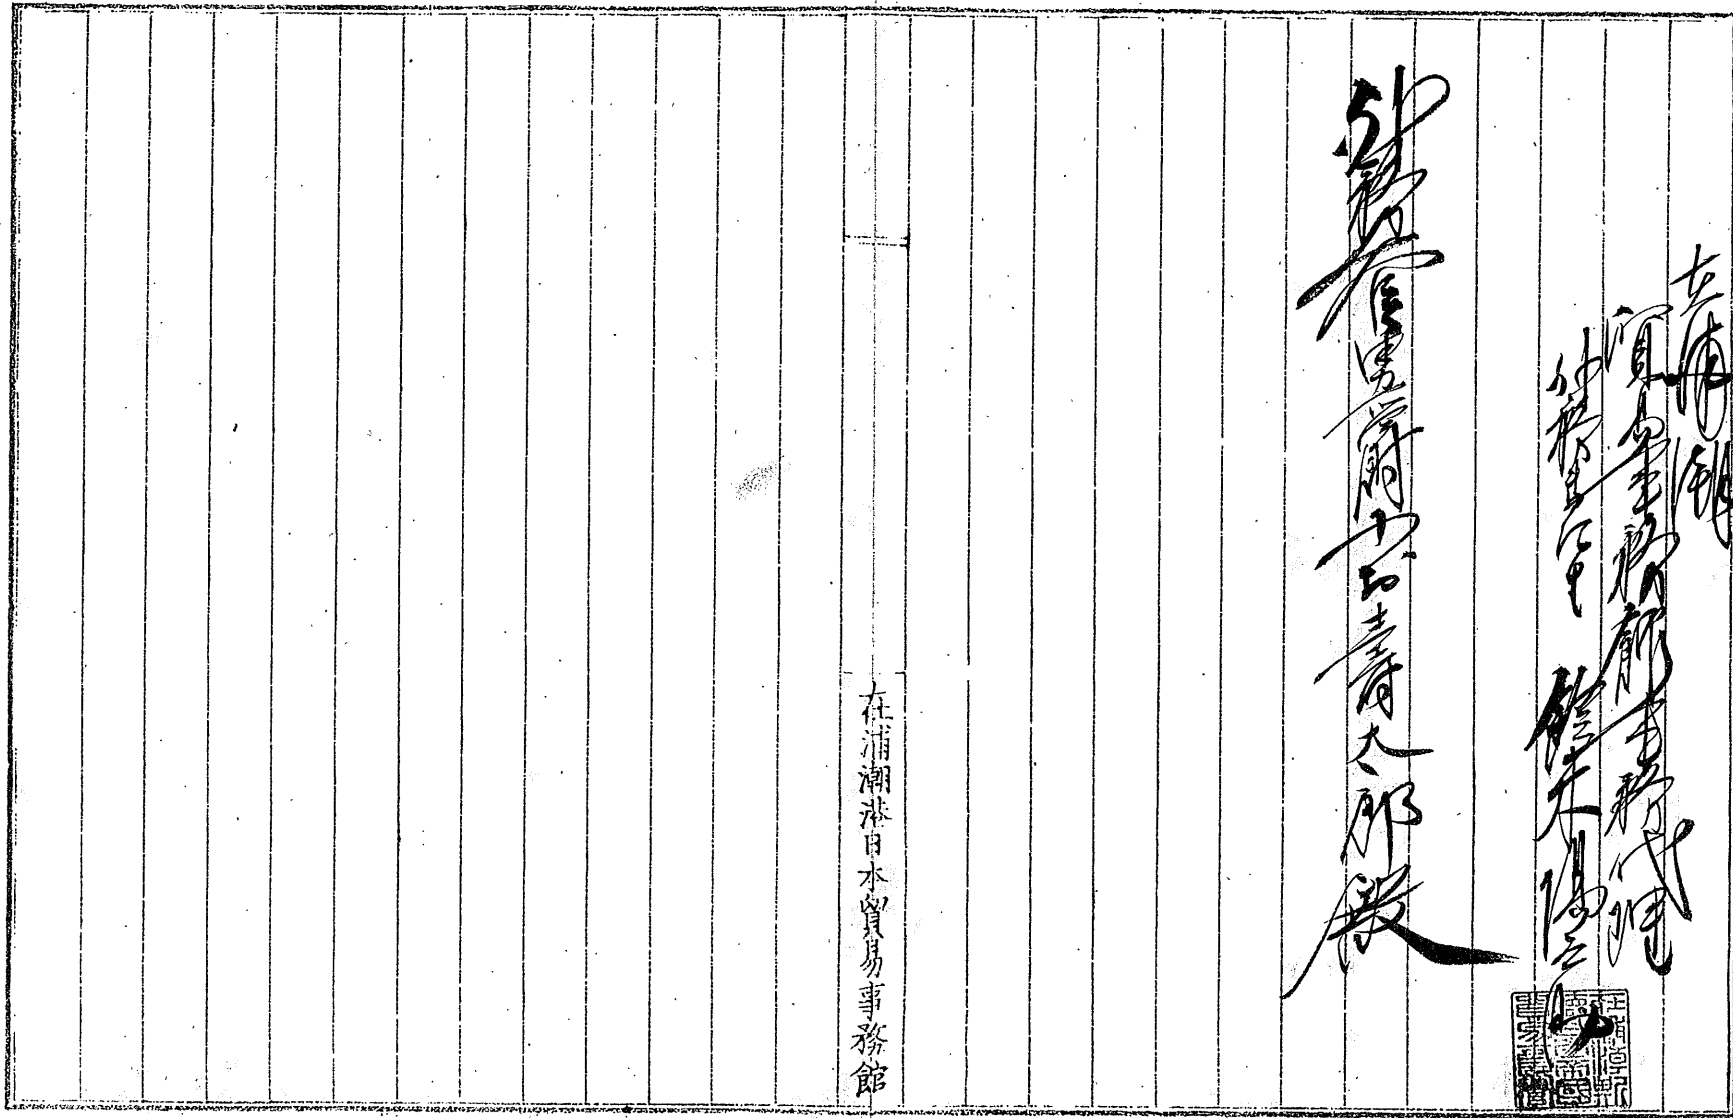 在浦潮
貿易事務館事務代理
外務書記生 鈴木陽之助
外務大臣男爵小村壽太郎殿
在浦潮港日本貿易事務館